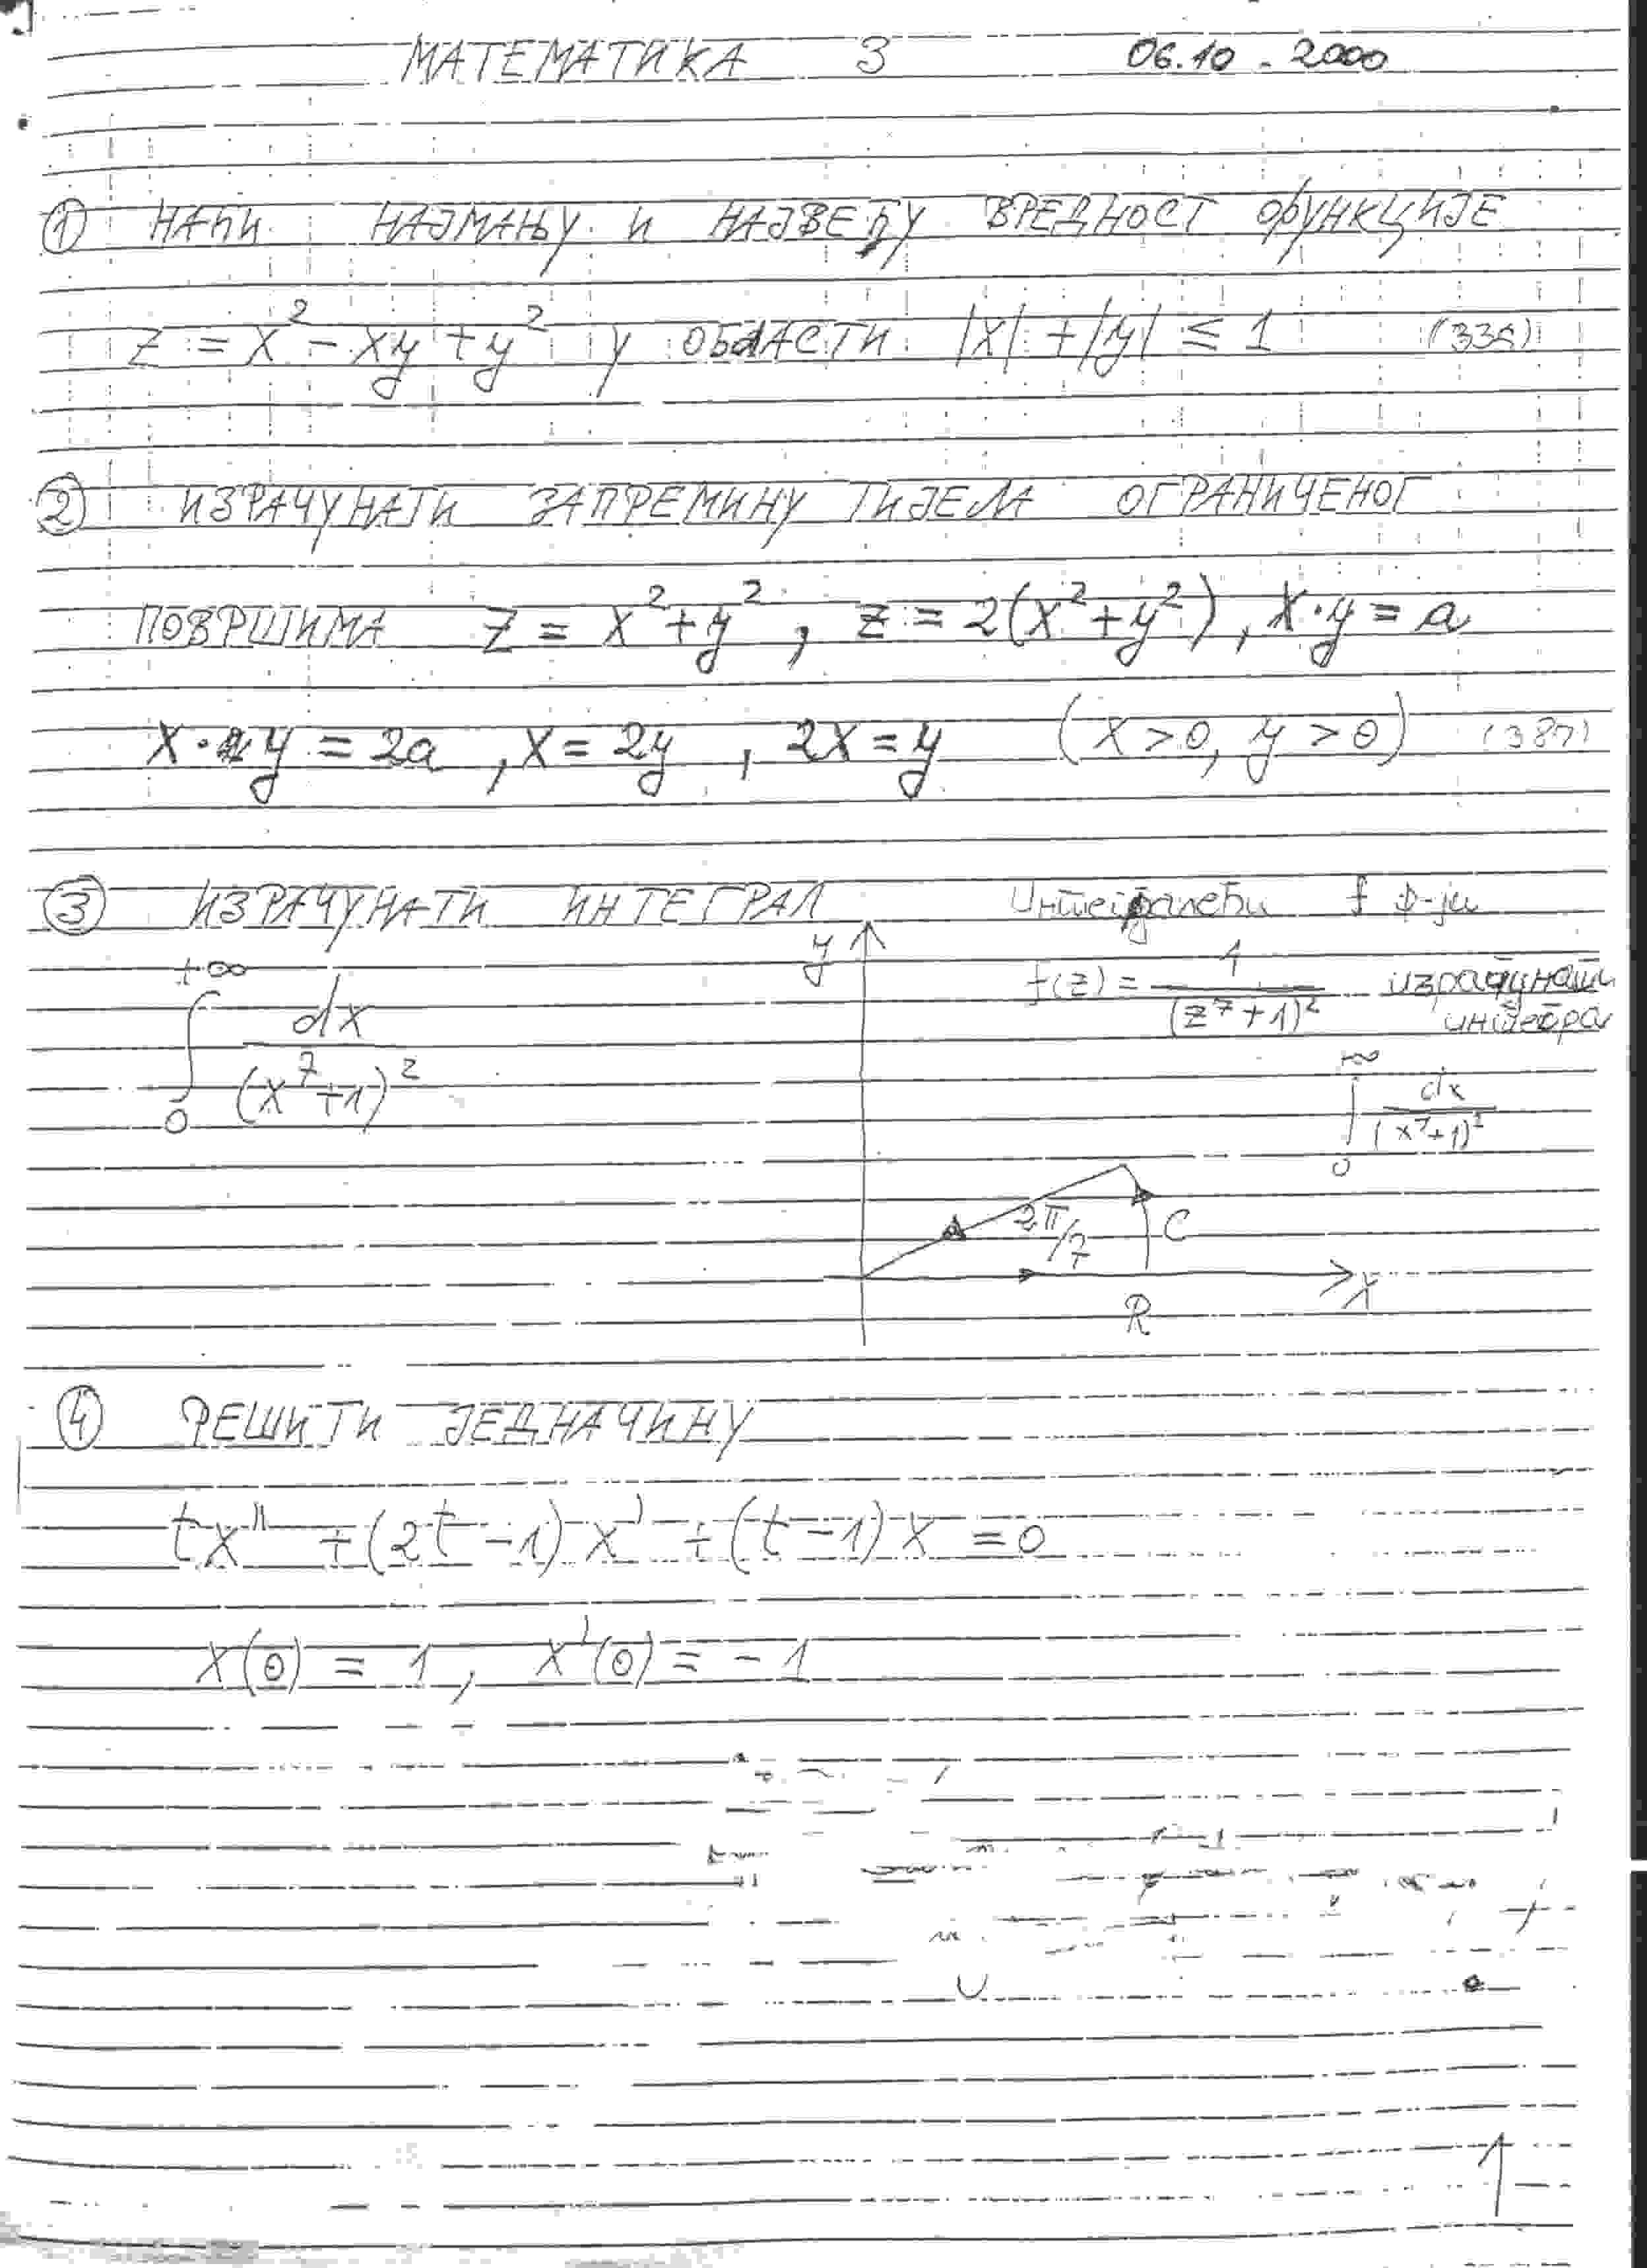 МАТЕМАТИКА 3 06.10.2000
① НАЋИ НАЈМАЊУ И НАЈВЕЋУ ВРЕДНОСТ ФУНКЦИЈЕ
z = x² - xy + y² У ОБЛАСТИ |x| + |y| ≤ 1
② ИЗРАЧУНАТИ ЗАПРЕМИНУ ТИЈЕЛА ОГРАНИЧЕНОГ
ПОВРШИМА z = x² + y², z = 2(x² + y²), x·y = a
x·y = 2a, x = 2y, 2x = y (x > 0, y > 0) (387)
③ ИЗРАЧУНАТИ ИНТЕГРАЛ
∫₀^{+∞} dx / (x⁷+1)²
Интегралећи f ф-ји
f(z) = 1 / (z⁷+1)² израчунати
интегра
∫₀^{+∞} dx / (x⁷+1)²
y
2π/7
C
R
x
④ РЕШИТИ ЈЕДНАЧИНУ
tx'' + (2t-1)x' + (t-1)x = 0
x(0) = 1, x'(0) = -1